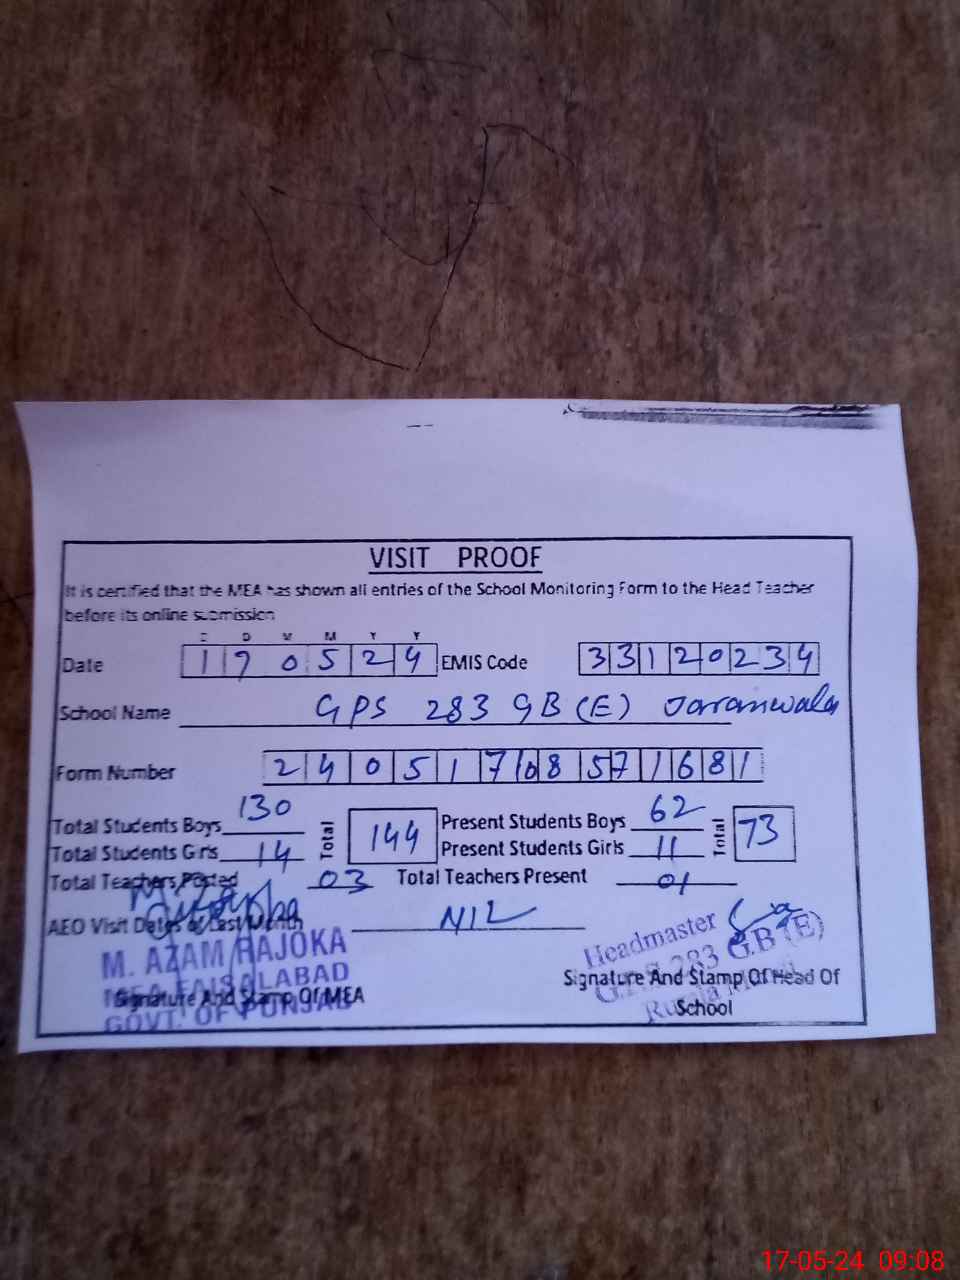 VISIT PROOF
It is certified that the MEA has shown all entries of the School Monitoring Form to the Head Teacher
before its online submission
D D M M Y Y
Date 170524 EMIS Code 33120234
School Name GPS 283 GB (E) Jarranwala
Form Number 24051708571681
Total Students Boys 130 Total 144 Present Students Boys 62 Total 73
Total Students Girls 14 Present Students Girls 11
Total Teachers Posted 03 Total Teachers Present 01
AEO Visit Dates of Last Month NIL
M. AZAM RAJOKA
MEA FAISALABAD
GOVT. OF PUNJAB
Signature And Stamp Of MEA
Headmaster
G.P.S 283 G.B (E)
Signature And Stamp Of Head Of
School
17-05-24 09:08